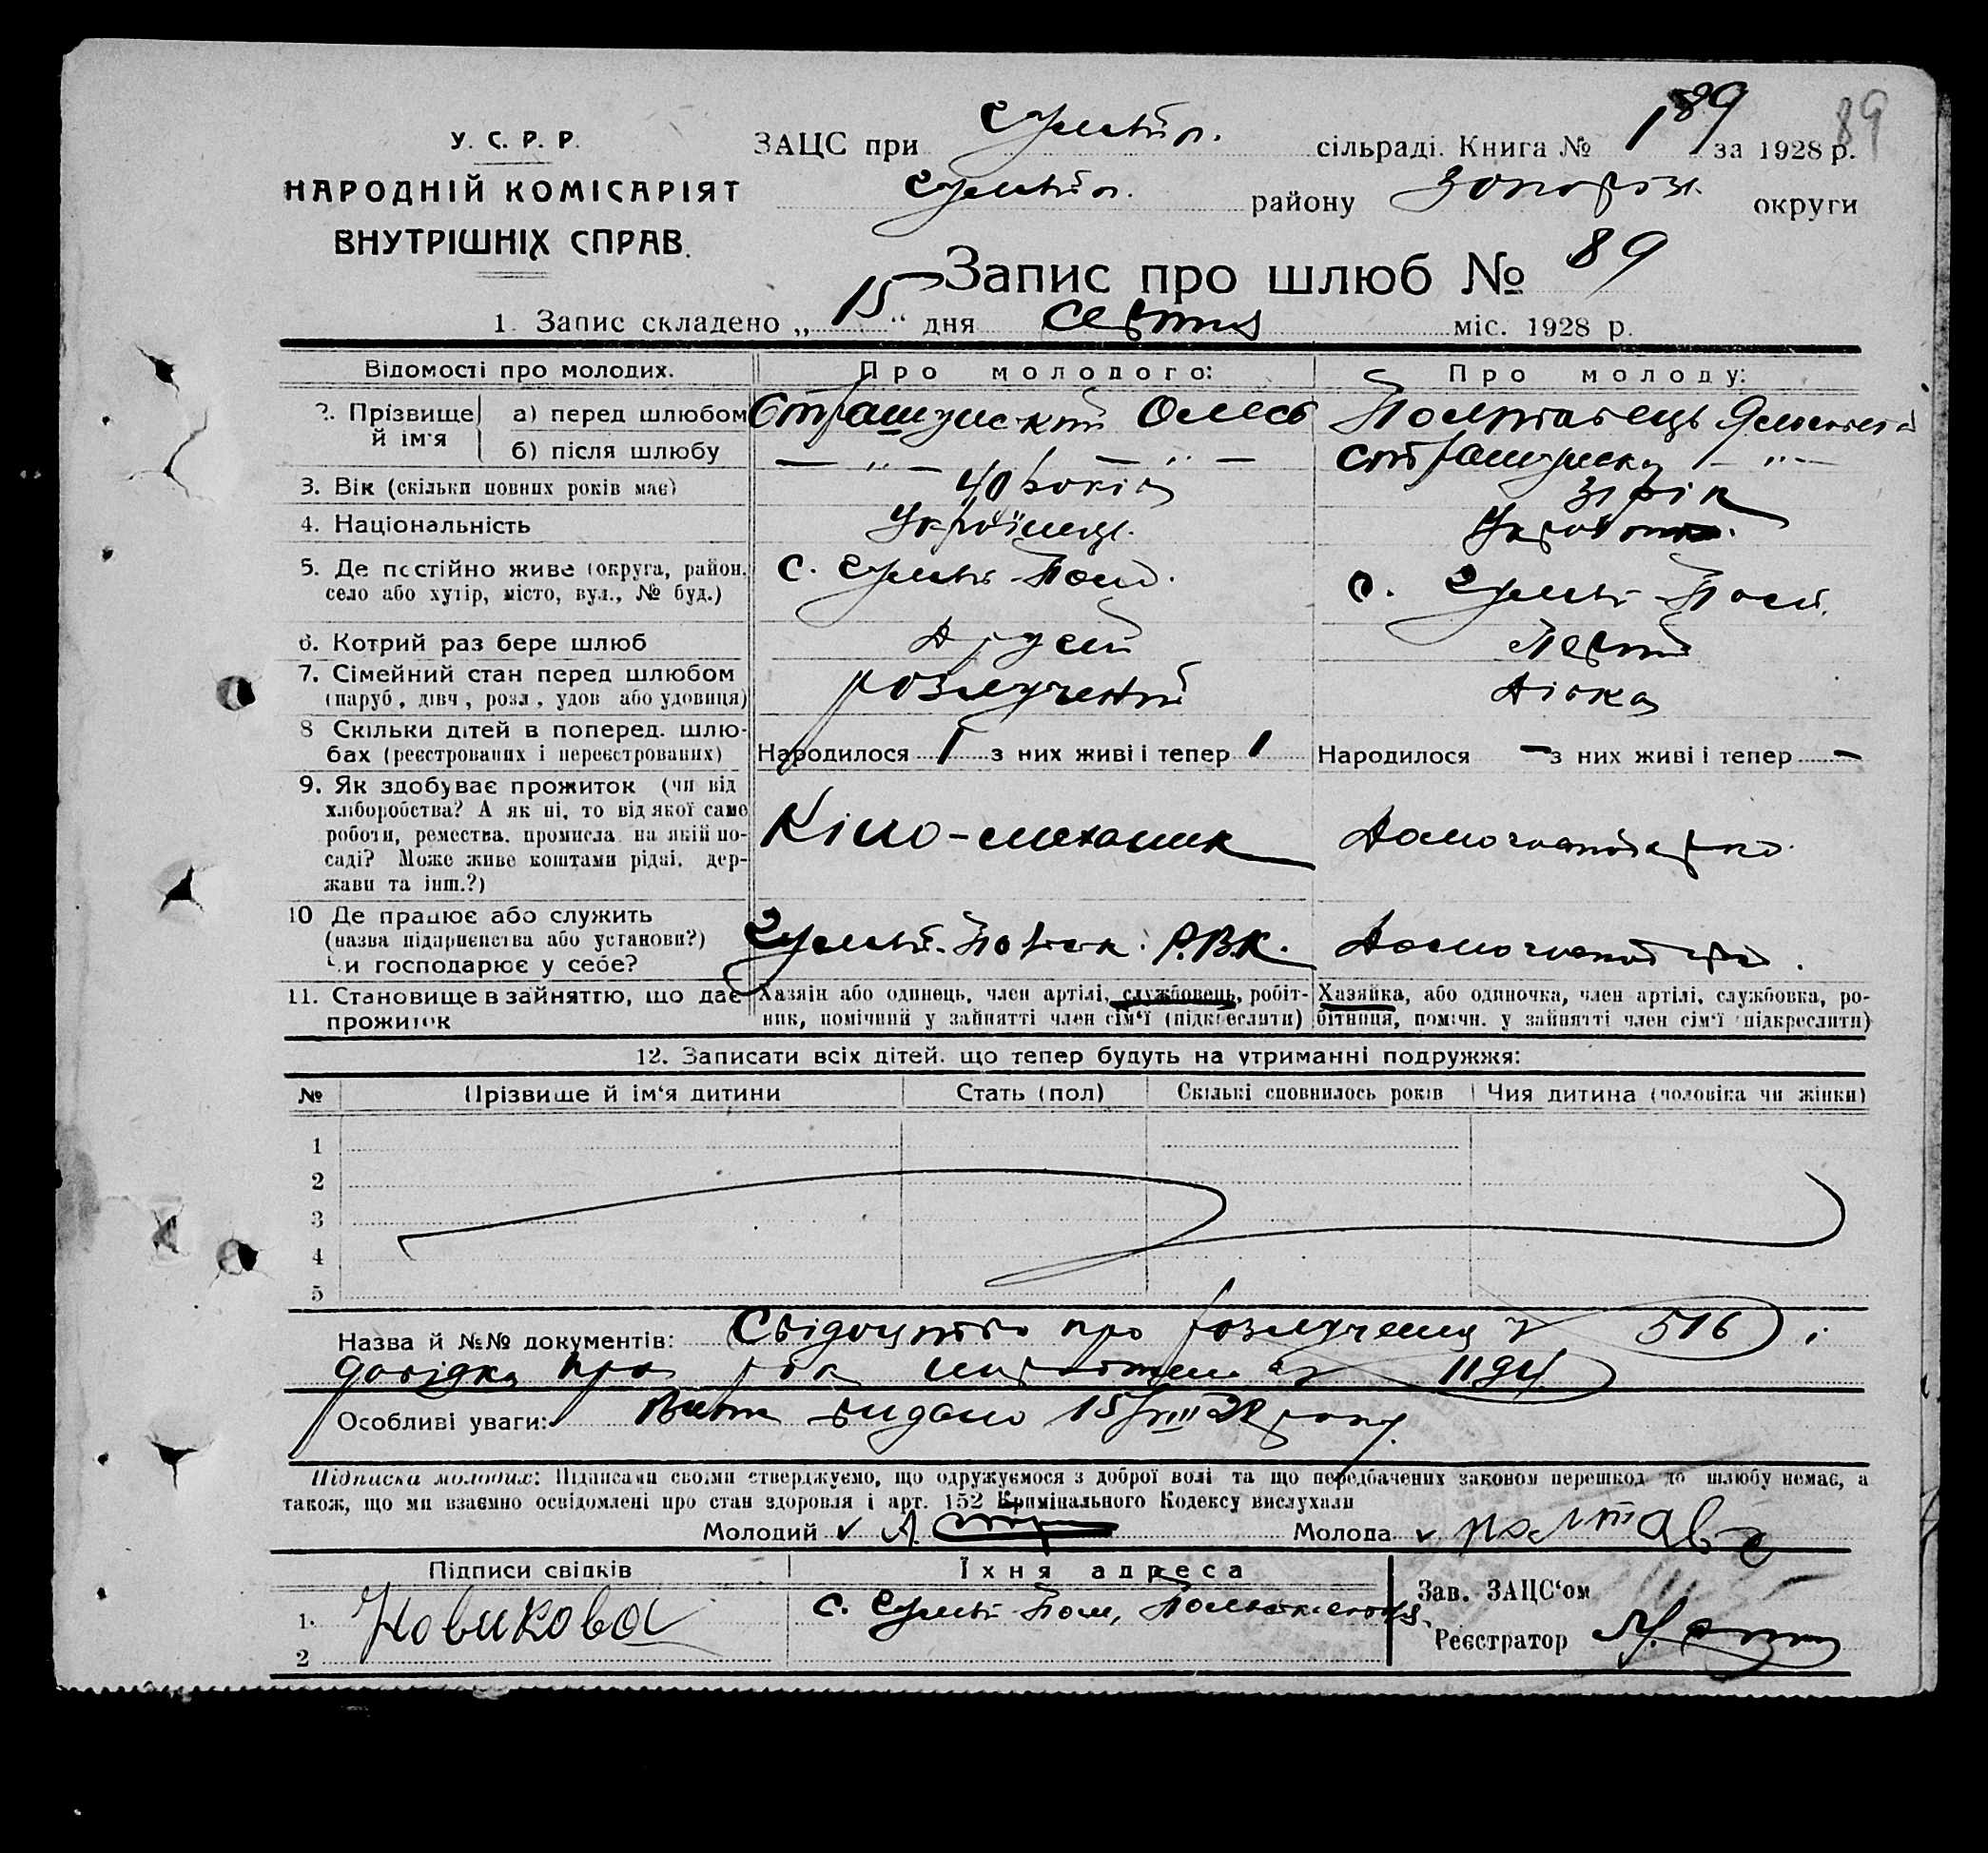 У. С. Р. Р.
НАРОДНІЙ КОМІСАРІЯТ
ВНУТРІШНІХ СПРАВ.
89
ЗАЦС при Гуляйп. сільраді. Книга № 1 89 за 1928 р.
Гуляйп. району Запоріз. округи
Запис про шлюб № 89
1. Запис складено „ 15 “ дня серпня міс. 1928 р.
Відомості про молодих. Про молодого: Про молоду:
2. Прізвище й ім'я
а) перед шлюбом Олесь Полтавець
б) після шлюбу — „ — — „ — — „ —
3. Вік (скільки повних років має) 40 років 31 рік
4. Національність Українець.
5. Де постійно живе (округа, район, село або хутір, місто, вул., № буд.) с. Гуляй-Поле. с. Гуляй-Поле.
6. Котрий раз бере шлюб Другий Перший
7. Сімейний стан перед шлюбом (паруб, дівч, розл, удов або удовиця) розлучений дівка
8 Скільки дітей в поперед. шлюбах (реєстрованих і нереєстрованих) Народилося 1 з них живі і тепер 1 Народилося — з них живі і тепер —
9. Як здобуває прожиток (чи від
хліборобства? А як ні, то від якої саме
роботи, ремества, промисла на якій по-
саді? Може живе коштами рідні, дер-
жави та інш.?)
Кіно-механик Домогосподарка.
10 Де працює або служить
(назва підприємства або установи?)
Чи господарює у себе?
Гуляй-Пільськ. Р.В.К.
11. Становище в зайняттю, що дає прожиток
Хазяін або одинець, член артілі, службовець, робіт-
ник, помічний у зайнятті член сім'ї (підкреслити)
Хазяйка, або одиночка, член артілі, службовка, ро-
бітниця, помічн. у зайнятті член сім'ї підкреслити)
12. Записати всіх дітей, що тепер будуть на утриманні подружжя:
№ Прізвище й ім'я дитини Стать (пол) Скількі сповнилось років Чия дитина (чоловіка чи жінки)
1
2
3
4
5
Назва й №№ документів: Свідоцтво про розлучення 516 і
довідка про рік 1194
Особливі уваги: Витяг видано 15/VIII 28 року.
Підписка молодих: Підписами своїми стверджуємо, що одружуємося з доброї волі та що передбачених законом перешкод до шлюбу немає, а
також, що ми взаємно освідомлені про стан здоровля і арт. 152 Кримінального Кодексу вислухали
Молодий А. Молода Полтаве
Підписи свідків Їхня адреса
1. Новикова с. Гуляй-Поле,
2
Зав. ЗАЦС'ом
Реєстратор